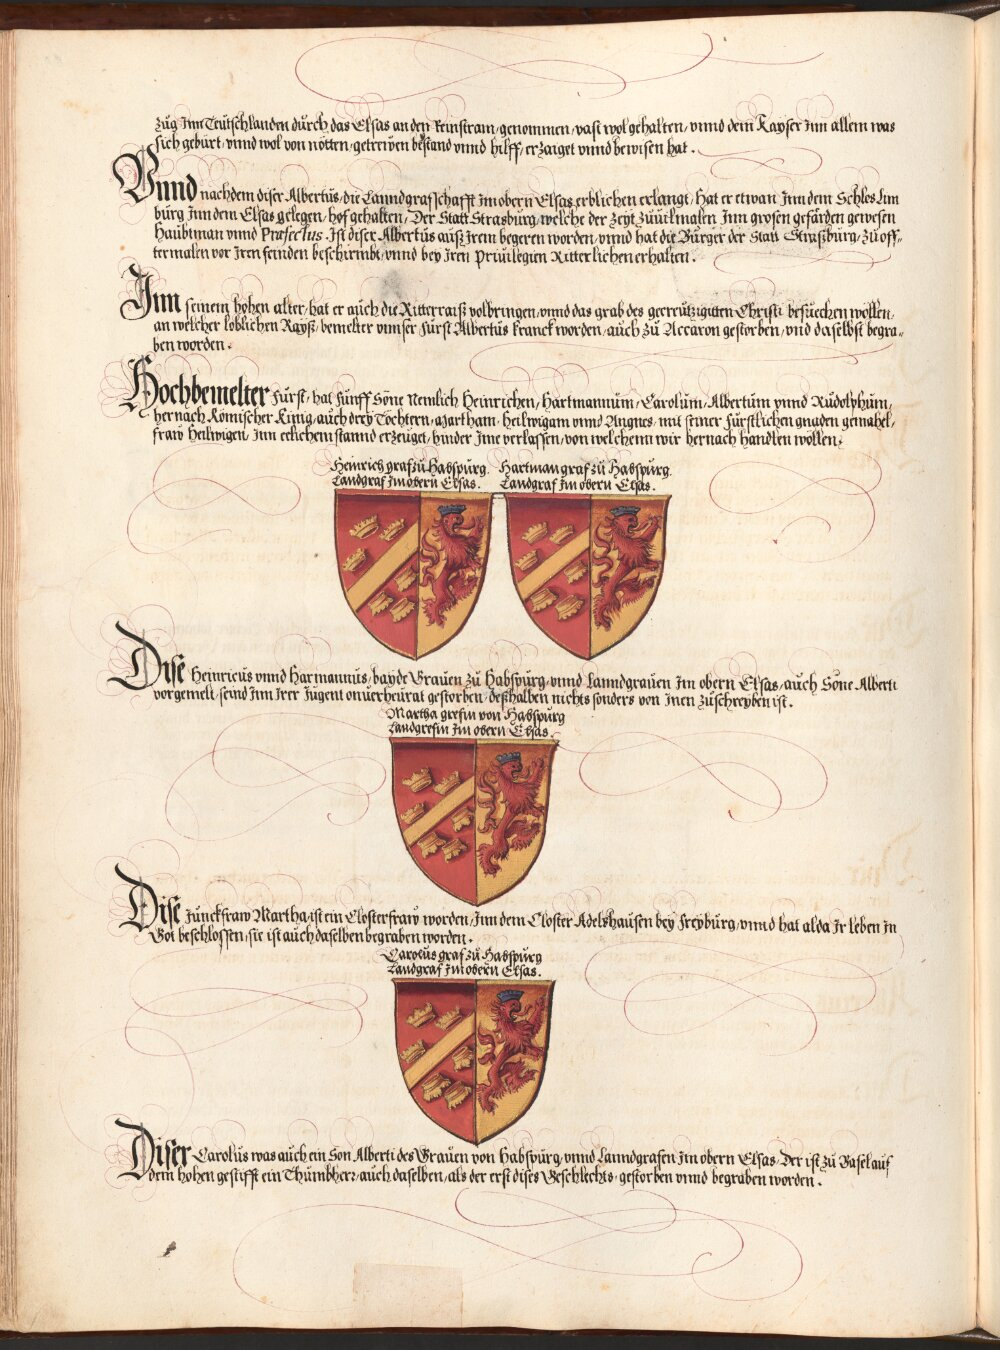 Zug Inn Teutschlanden durch das Elsas an den Reinstram, genomen, vast wol gehalten, vnnd dem Kayser Inn allem was
sich geburt, vnnd wol von nötten, getrewen bestand vnnd hilff, erzaiget vnnd bewisen hat.
Vnnd nachdem diser Albertus, die Lanndgrafschafft Im obern Elsas, erblichen erlangt, Hat er etwan Inn dem Schlos Lim
burg Inn dem Elsas gelegen, hof gehalten, Der Statt Strasburg, welche der Zeyt zuuilmalen Inn grosen gefarden gewesen
Haubtman vnnd Præfectus. Ist diser Albertus ausz Irem begeren worden, vnnd hat die Burger der Statt Straszburg, zu off=
termalen vor Iren feinden beschirmbt, vnnd bey Iren Priuilegien Ritterlichen erhalten.
Inn seinem hohen alter, hat er auch die Ritterraisz volbringen, vnnd das grab des gecreutzigtten Christi besuechen wollen,
an welcher loblichen Rayss, bemelter vnnser Furst Albertus kranck worden, auch zu Accaron gestorben, vnd daselbst begra=
ben worden.
Hochbemelter Furst, hat funff Söne Nemlich Heinrichen, Hartmannum, Carolum, Albertum vnnd Rudolphum,
hernach Römischer Kinig, auch drey Töchtern, Martham, Heilwigam vnnd Angnes, mit seiner Fürstlichen gnaden gemahel,
fraw Heilwigen, Inn eelichem stannd erzeuget, hinder Ime verlassen, von welchenn wir hernach handlen wöllen.
Heinrich graf zu Habspurg. Hartman graf zu Habspurg.
Landgraf Im obern Elsas. Landgraf Im obern Elsas.
Dise Heinricus vnnd Harmannus, bayde Grauen zu Habspurg, vnnd Lanndgrauen Im obern Elsas, auch Söne Alberti
vorgemelt, seind Inn Irer Jugent onuerheurat gestorben, deszhalben nichts sonders von Inen zuschreyben ist.
Martha grefin von Habspurg
Landgrefin Im obern Elsas.
Dise Junckfraw Martha, ist ein Closterfraw worden, Inn dem Closter Adelshausen bey Freyburg, vnnd hat alda Ir leben In
Got beschlossen, sie ist auch daselben begraben worden.
Carolus graf zu Habspurg
Landgraf Im obern Elsas.
Diser Carolus was auch ein Son Alberti des Grauen von Habspurg, vnnd Lanndgrafen Im obern Elsas, Der ist zu Basel auf
dem hohen gestifft ein Thumbherr, auch daselben, als der erst dises Geschlechts, gestorben vnnd begraben worden.